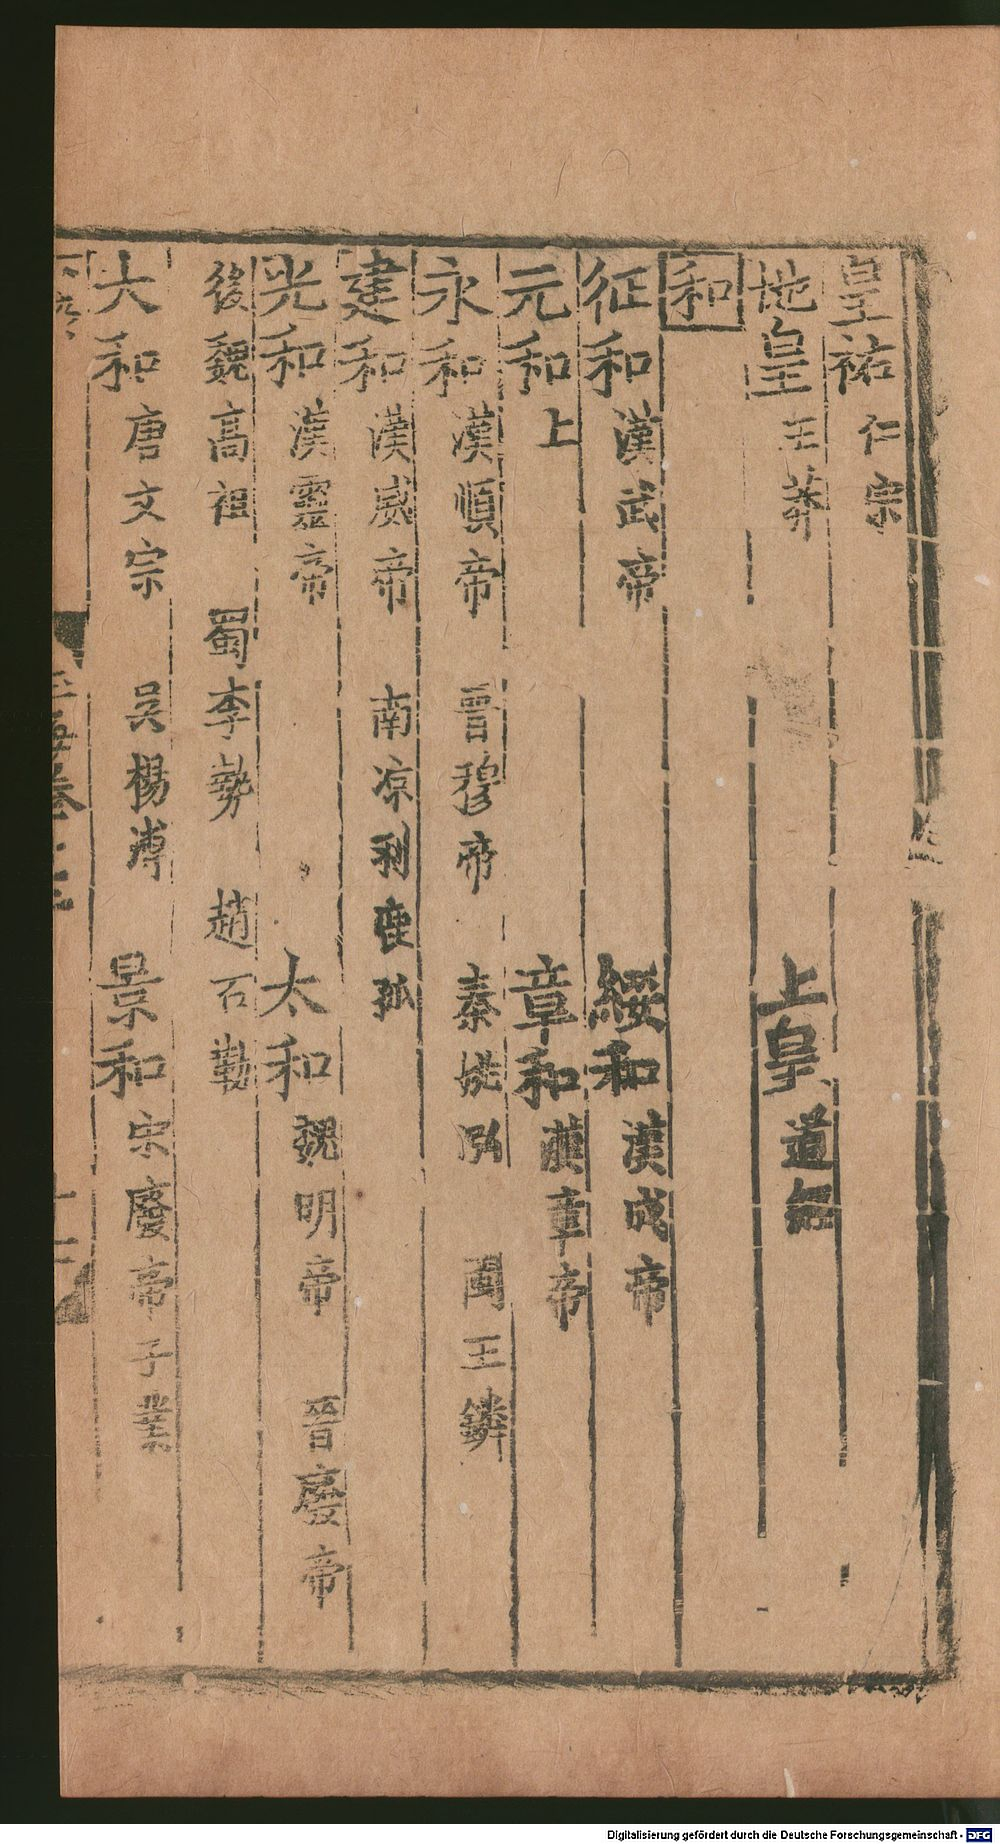 皇祐 仁宗
地皇 王莽 上皇 道經
和
征和 漢武帝 綏和 漢成帝
元和 上 章和 漢章帝
永和 漢順帝 晉穆帝 秦姚泓 閩王鏻
建和 漢威帝 南凉利鹿孤
光和 漢靈帝 太和 魏明帝 晉廢帝
後魏高祖 蜀李勢 趙石勒
大和 唐文宗 吳楊溥 景和 宋廢帝子業
玉海卷十三
Digitalisierung gefördert durch die Deutsche Forschungsgemeinschaft - DFG